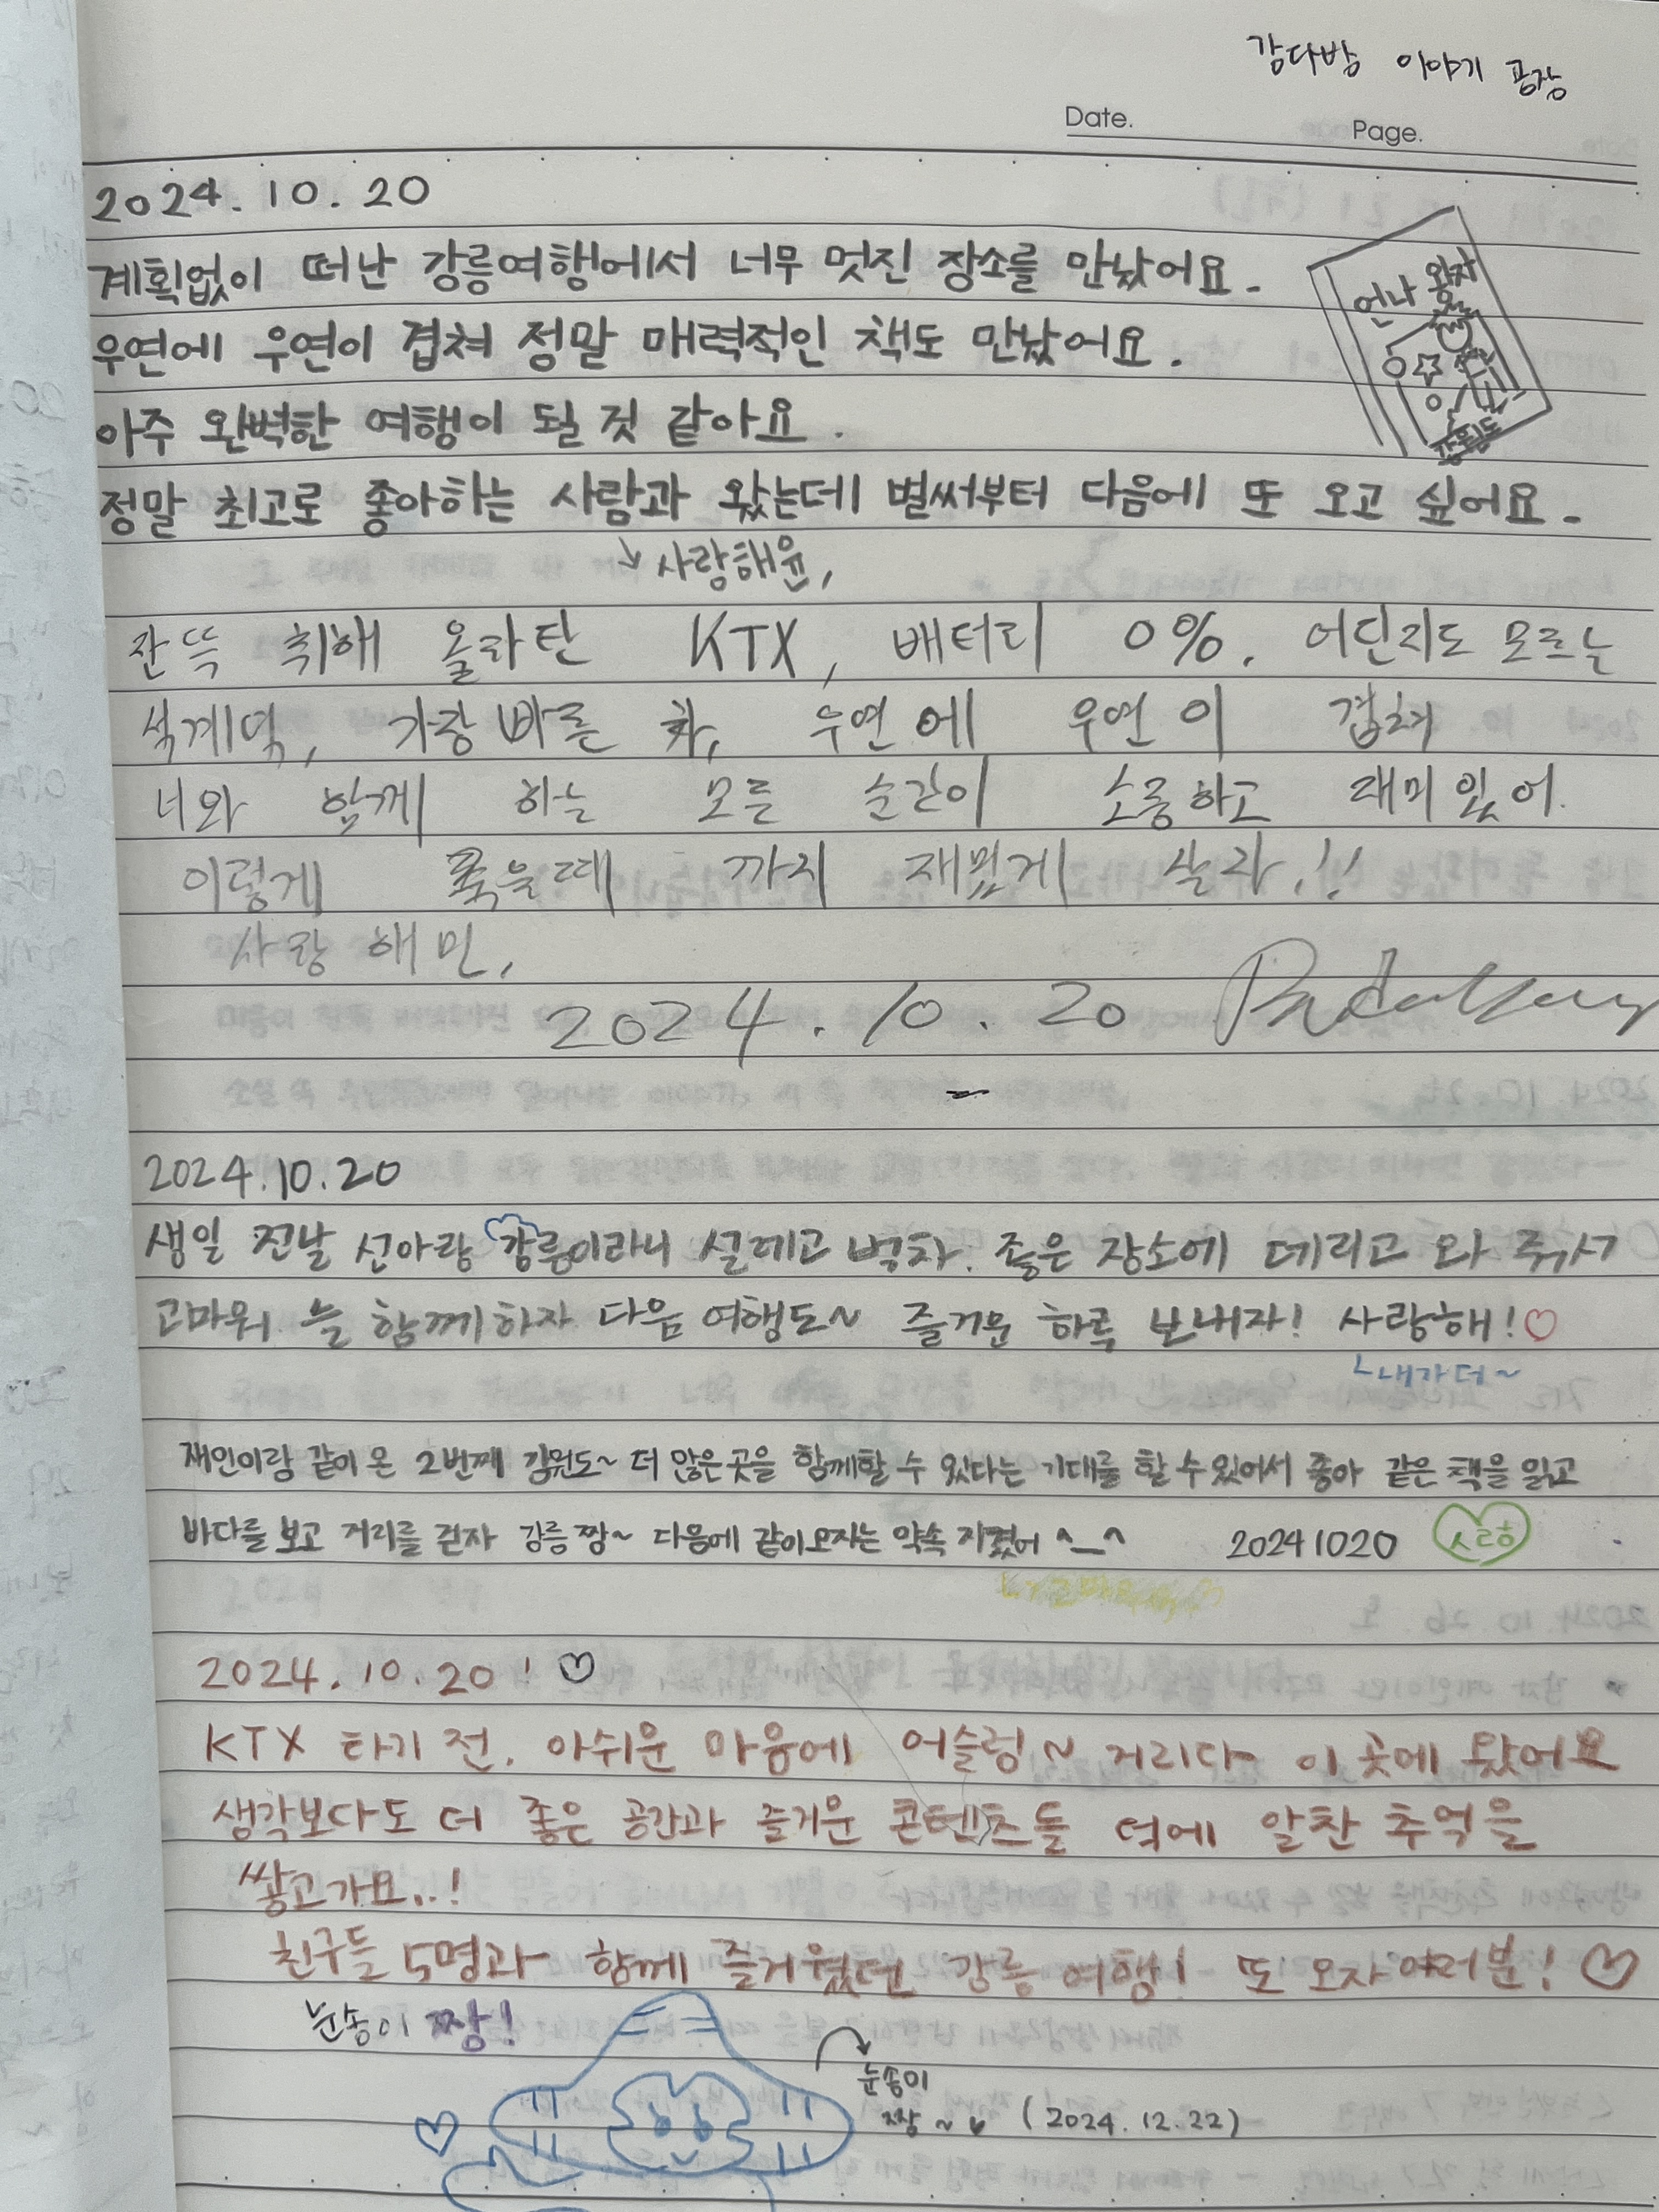 감다방 이야기 공장
Date.
Page.
2024. 10. 20
계획없이 떠난 강릉여행에서 너무 멋진 장소를 만났어요.
우연에 우연이 겹쳐 정말 매력적인 책도 만났어요.
아주 완벽한 여행이 될 것 같아요.
언나 왕자
정말 최고로 좋아하는 사람과 왔는데 벌써부터 다음에 또 오고 싶어요.
↘ 사랑해윤,
잔뜩 취해 올라탄 KTX, 배터리 0%. 어딘지도 모르는
석계역, 가장 빠른 차, 우연에 우연이 겹쳐
너와 함께 하는 모든 순간이 소중하고 재미있어.
이렇게 죽을때 까지 재밌게 살자.!!
사랑해민,
2024. 10. 20
2024.10.20
생일 전날 선아랑 강릉이라니 설레고 벅차. 좋은 장소에 데리고 와 줘서
고마워. 늘 함께하자 다음 여행도~ 즐거운 하루 보내자! 사랑해!♡
ㄴ내가더~
재인이랑 같이 온 2번째 강원도~ 더 많은 곳을 함께할 수 있다는 기대를 할 수 있어서 좋아 같은 책을 읽고
바다를 보고 거리를 걷자 강릉 짱~ 다음에 같이오자는 약속 지켰어 ^_^ 20241020
2024. 10. 20 ! ♡
KTX 타기 전, 아쉬운 마음에 어슬렁~ 거리다 이 곳에 왔어요
생각보다도 더 좋은 공간과 즐거운 콘텐츠들 덕에 알찬 추억을
쌓고가요..!
친구들 5명과 함께 즐거웠던 강릉 여행! 또 오자 여러분! ♡
눈송이 짱!
눈송이
짱~♥ (2024. 12. 22)